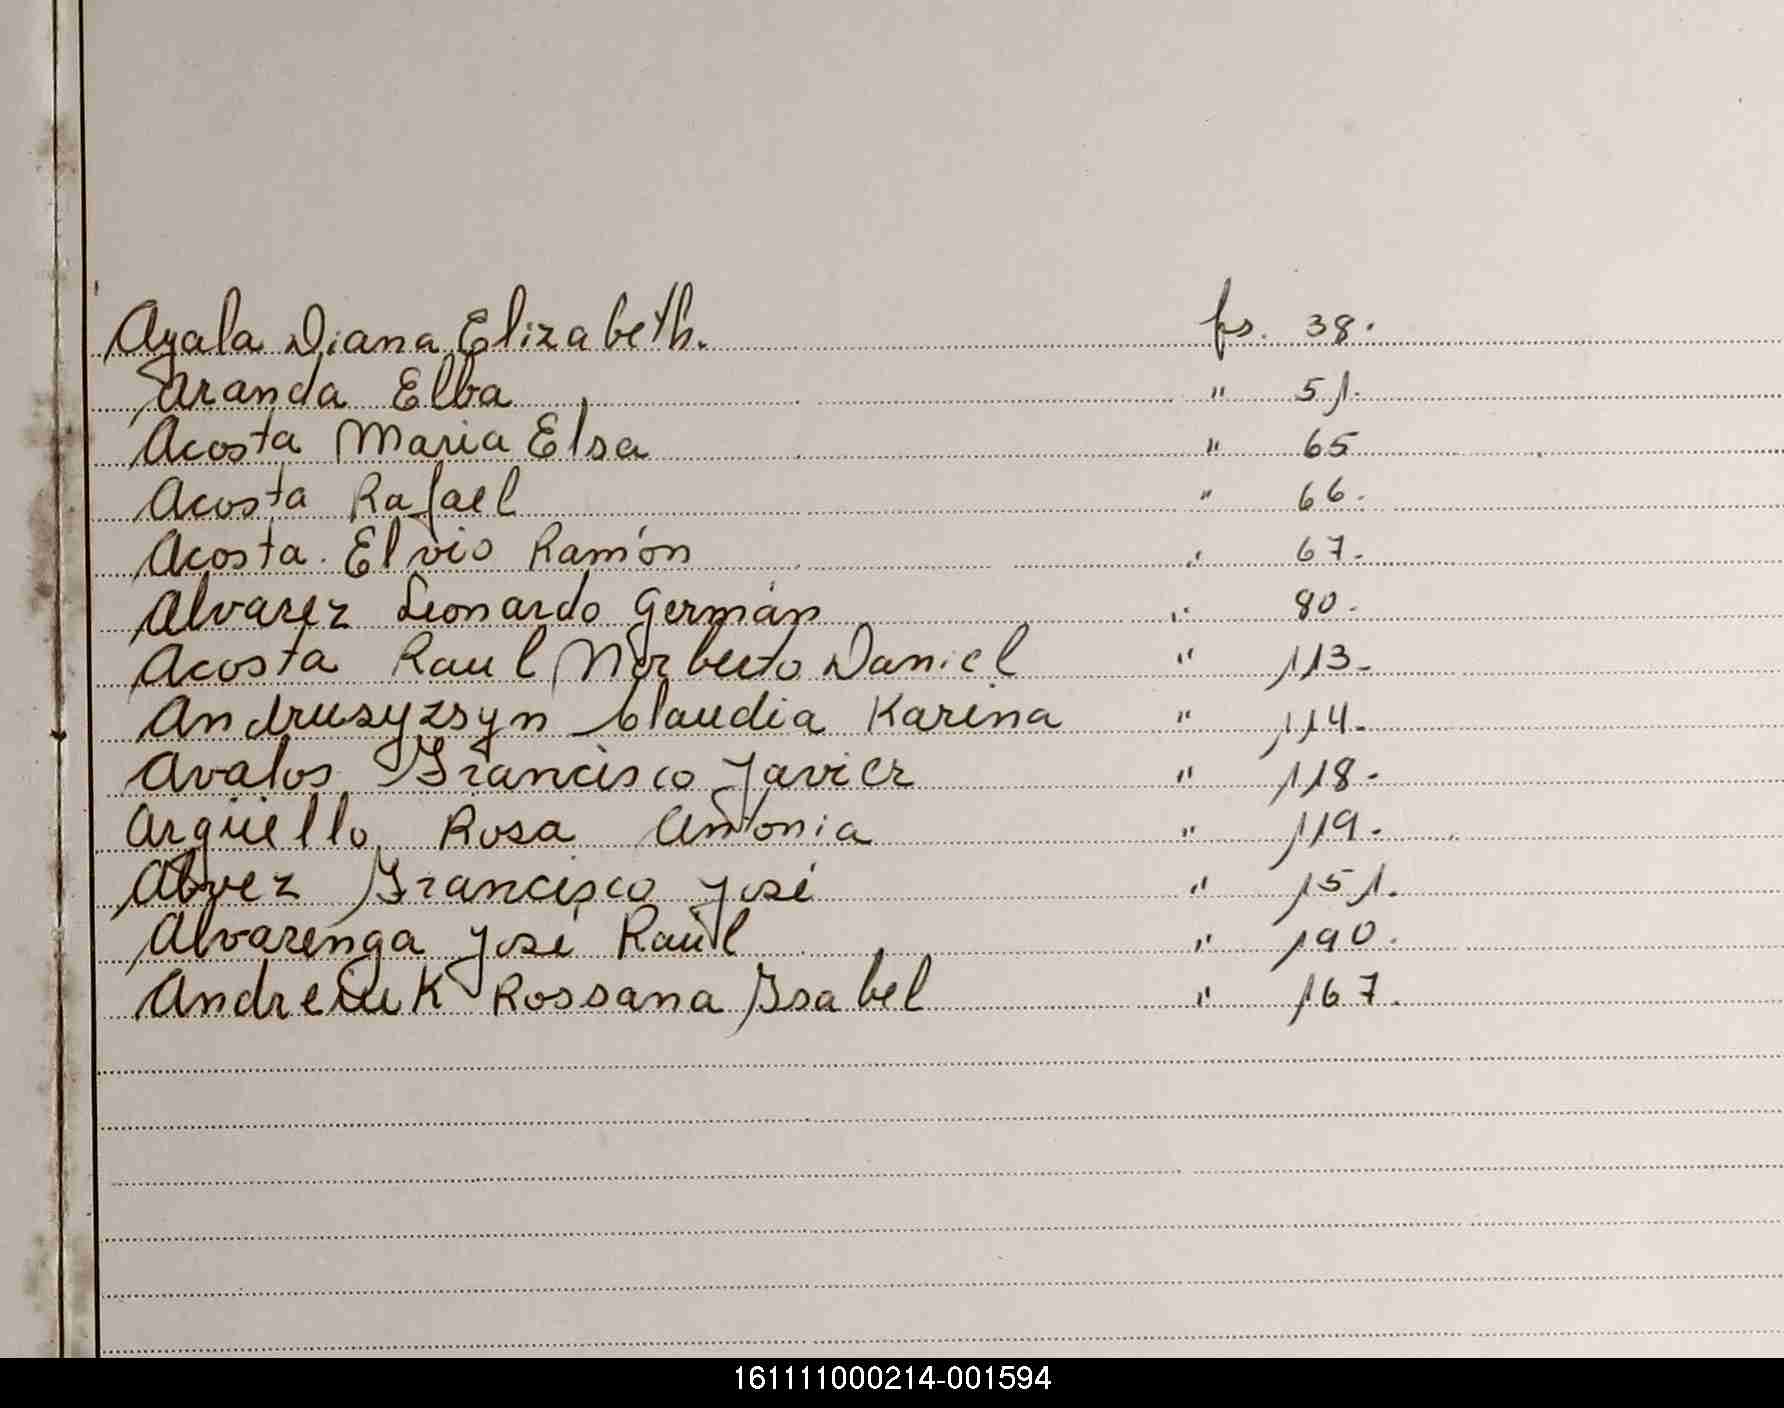 Ayala Diana Elizabeth. fs. 38.
Aranda Elba " 51.
Acosta Maria Elsa " 65
Acosta Rafael " 66.
Acosta. Elvio Ramón " 67.
Alvarez Leonardo Germán " 80.
Acosta Raul Norberto Daniel " 113.
Andrusyzsyn Claudia Karina " 114.
Avalos Francisco Javier " 118.
Argüello Rosa Antonia " 119.
Francisco José " 151.
Alvarenga José Raúl " 190.
Andreiuk Rossana Isabel " 167.
161111000214-001594